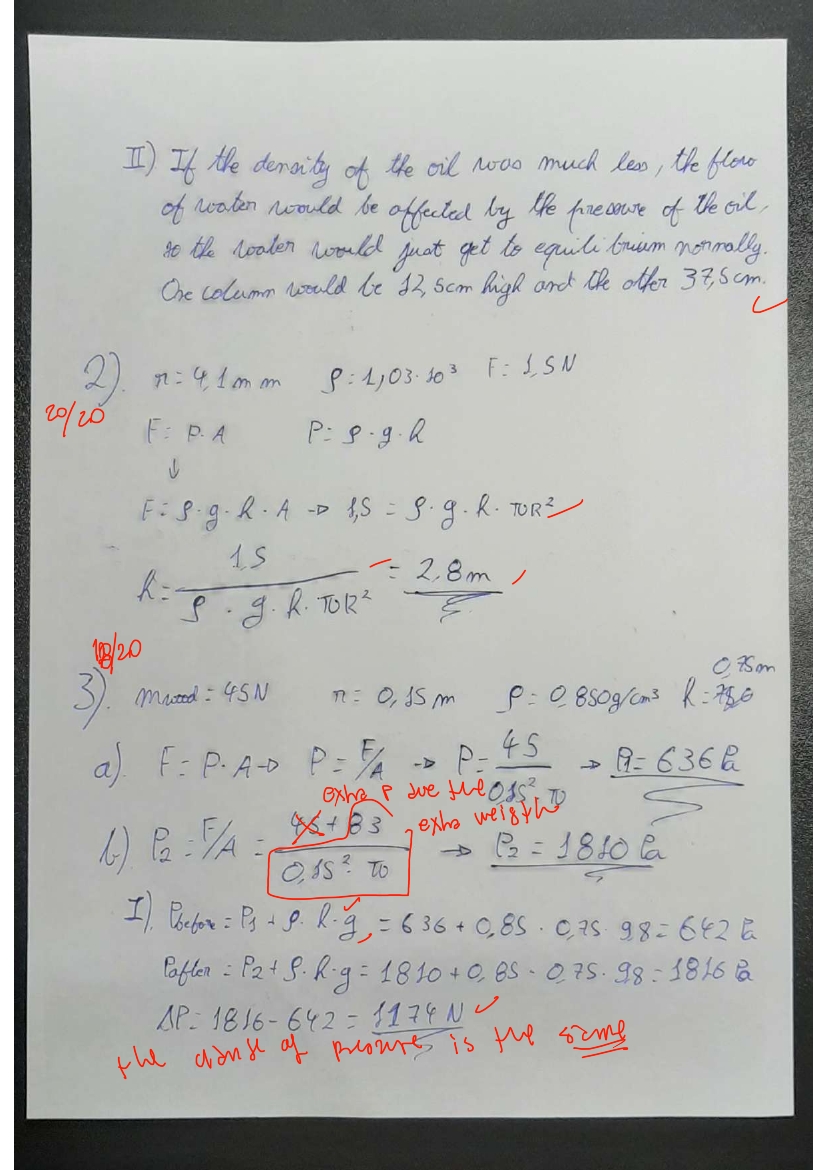 II) If the density of the oil was much less, the flow
of water would be affected by the pressure of the oil,
so the water would just get to equilibrium normally.
One column would be 12,5cm high and the other 37,5cm.
2). r = 4,1mm ρ = 1,03·10³ F = 1,5N
20/20
F = P·A P = ρ·g·h
↓
F = ρ·g·h·A → 1,5 = ρ·g·h·πR²
h = 1,5 / ρ·g·h·πR² = 2,8m
/20
3). mwood = 45N r = 0,15m ρ = 0,850g/cm³ h = 0,75m
a). F = P·A → P = F/A → P = 45 / 0,15² π → P1 = 636 Pa
extra P due the
extra weight
b). P₂ = F/A = 45 + 83 / 0,15² · π → P₂ = 1810 Pa
I). Pbefore = P₁ + ρ·h·g = 636 + 0,85 · 0,75 · 9,8 = 642 Pa
Pafter = P₂ + ρ·h·g = 1810 + 0,85 · 0,75 · 9,8 = 1816 Pa
ΔP = 1816 - 642 = 1174 N
the change of pressure is the same